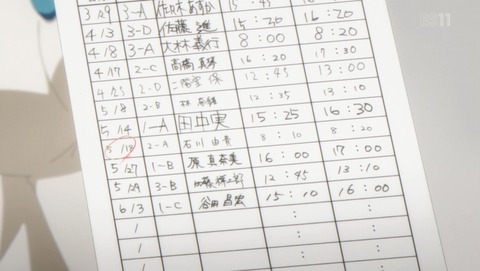 BS11
3/29 3-A 佐々木あすか 15:45
4/13 3-D 佐藤 進 15:20 16:20
4/18 3-A 大林義行 8:00 8:20
4/17 2-C 高橋真琴 16:20 17:30
4/25 2-D 二階堂 保 12:45 13:00
5/8 2-B 林 12:35 13:10
5/14 1-A 田中実 15:25 16:30
5/18 2-A 石川由貴 8:10 8:20
5/27 1-B 原真奈美 16:00 17:00
5/29 3-B 12:45 13:10
6/3 1-C 谷田昌宏 15:10 16:00
/ : :
/ : :
/ :